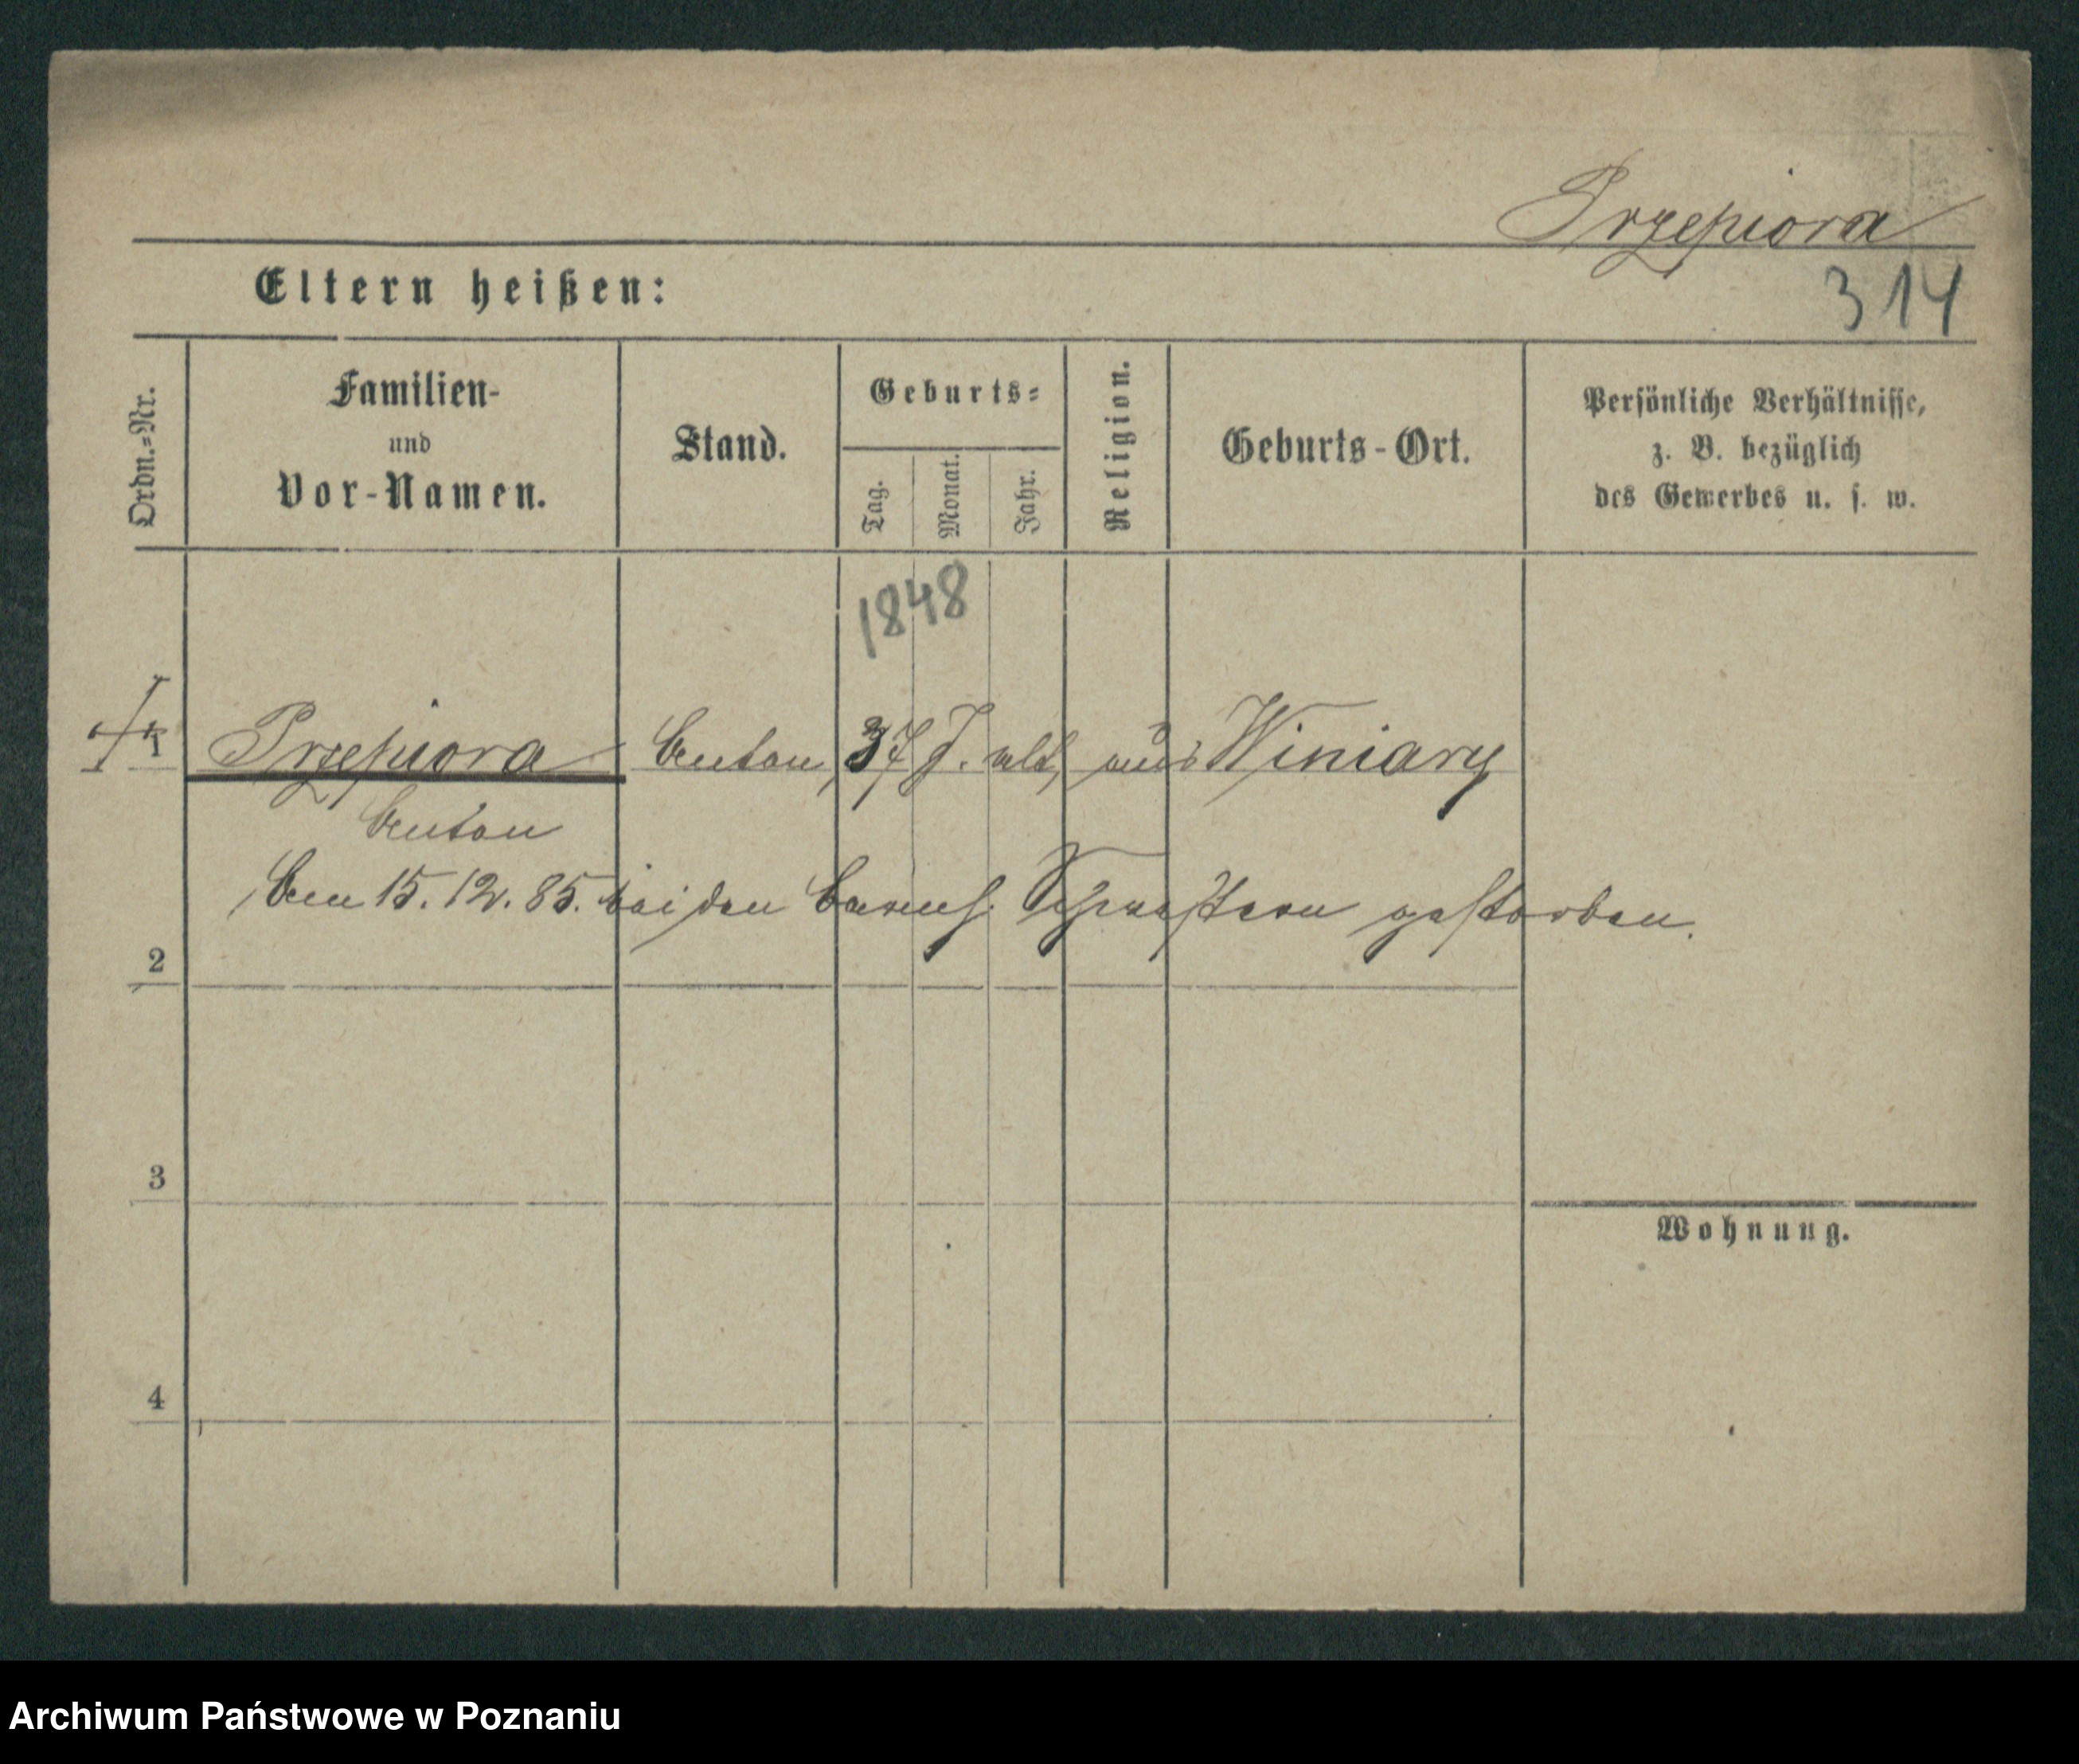 Przepiora
Eltern heißen:
314
Ordn.=Nr.
Familien-
und
Vor-Namen.
Stand.
Geburts=
Tag.
Monat.
Jahr.
Religion.
Geburts-Ort.
Persönliche Verhältnisse,
z. B. bezüglich
des Gewerbes u. s. w.
1848
1 Przepiora Anton, 37 J. alt, aus Winiary
Anton
Am 15. 12. 85. bei den barmh. Schwestern gestorben.
2
3
Wohnung.
4
Archiwum Państwowe w Poznaniu